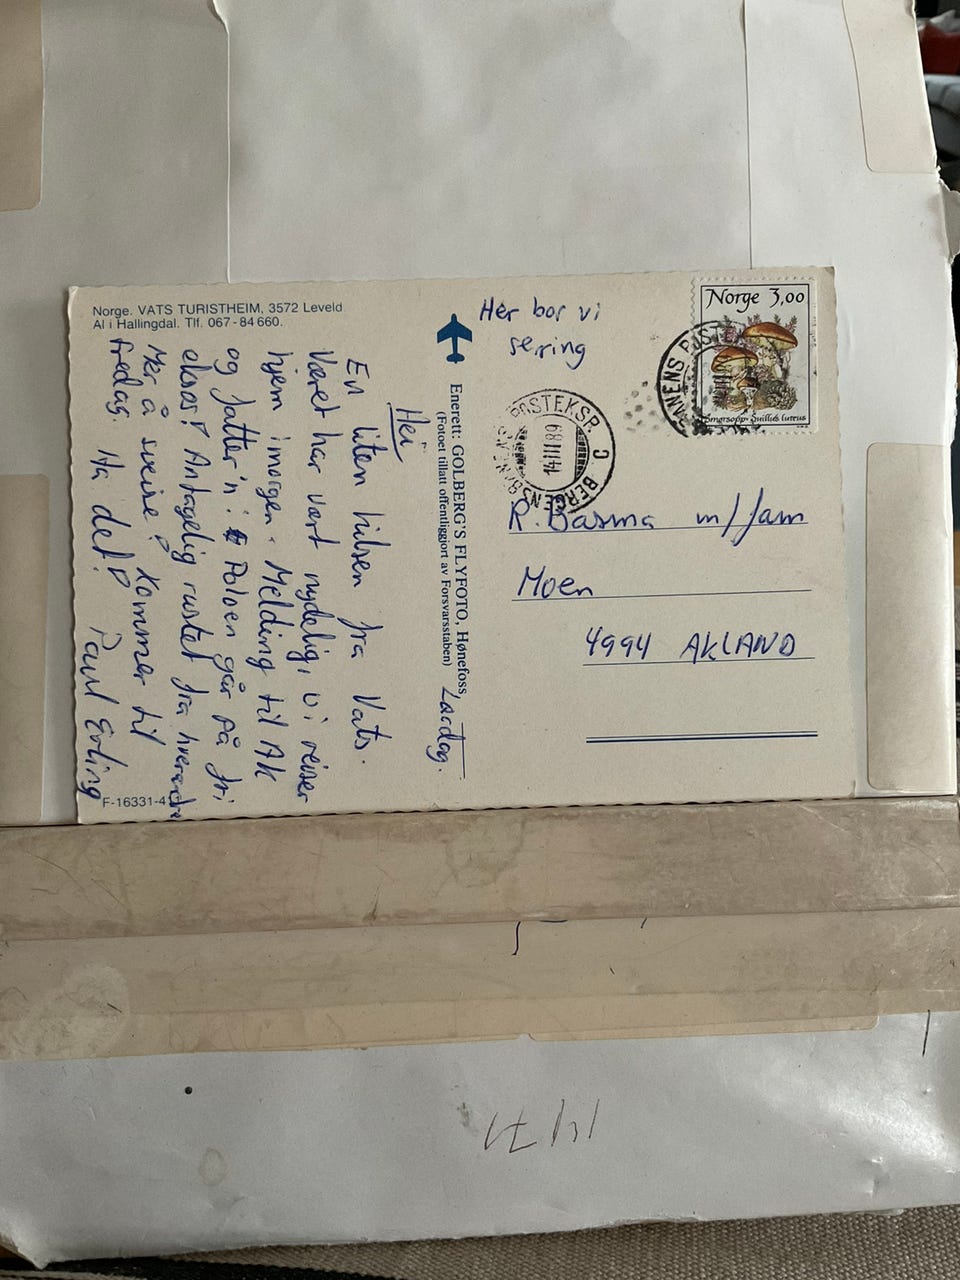 Norge. VATS TURISTHEIM, 3572 Leveld
Ål i Hallingdal. Tlf. 067-84 660.
Her bor vi
Norge 3,00
Smørsopp · Suillus luteus
POSTEKSP. C
BERGENSBANENS
14 III 89
Enerett: GOLBERG'S FLYFOTO, Hønefoss
(Fotoet tillatt offentliggjort av Forsvarsstaben)
Lørdag.
Hei
En liten hilsen fra Vats.
Været har vært nydelig, vi reiser
hjem i morgen. Melding til AK
og fatter'n: Poloen går på fri
eksos! Antagelig rustet fra hverandre
Mer å sveise! Kommer til
fredag. Ha det! Paul Erling
F-16331-4
R. Barma m/fam
Moen
4994 AKLAND